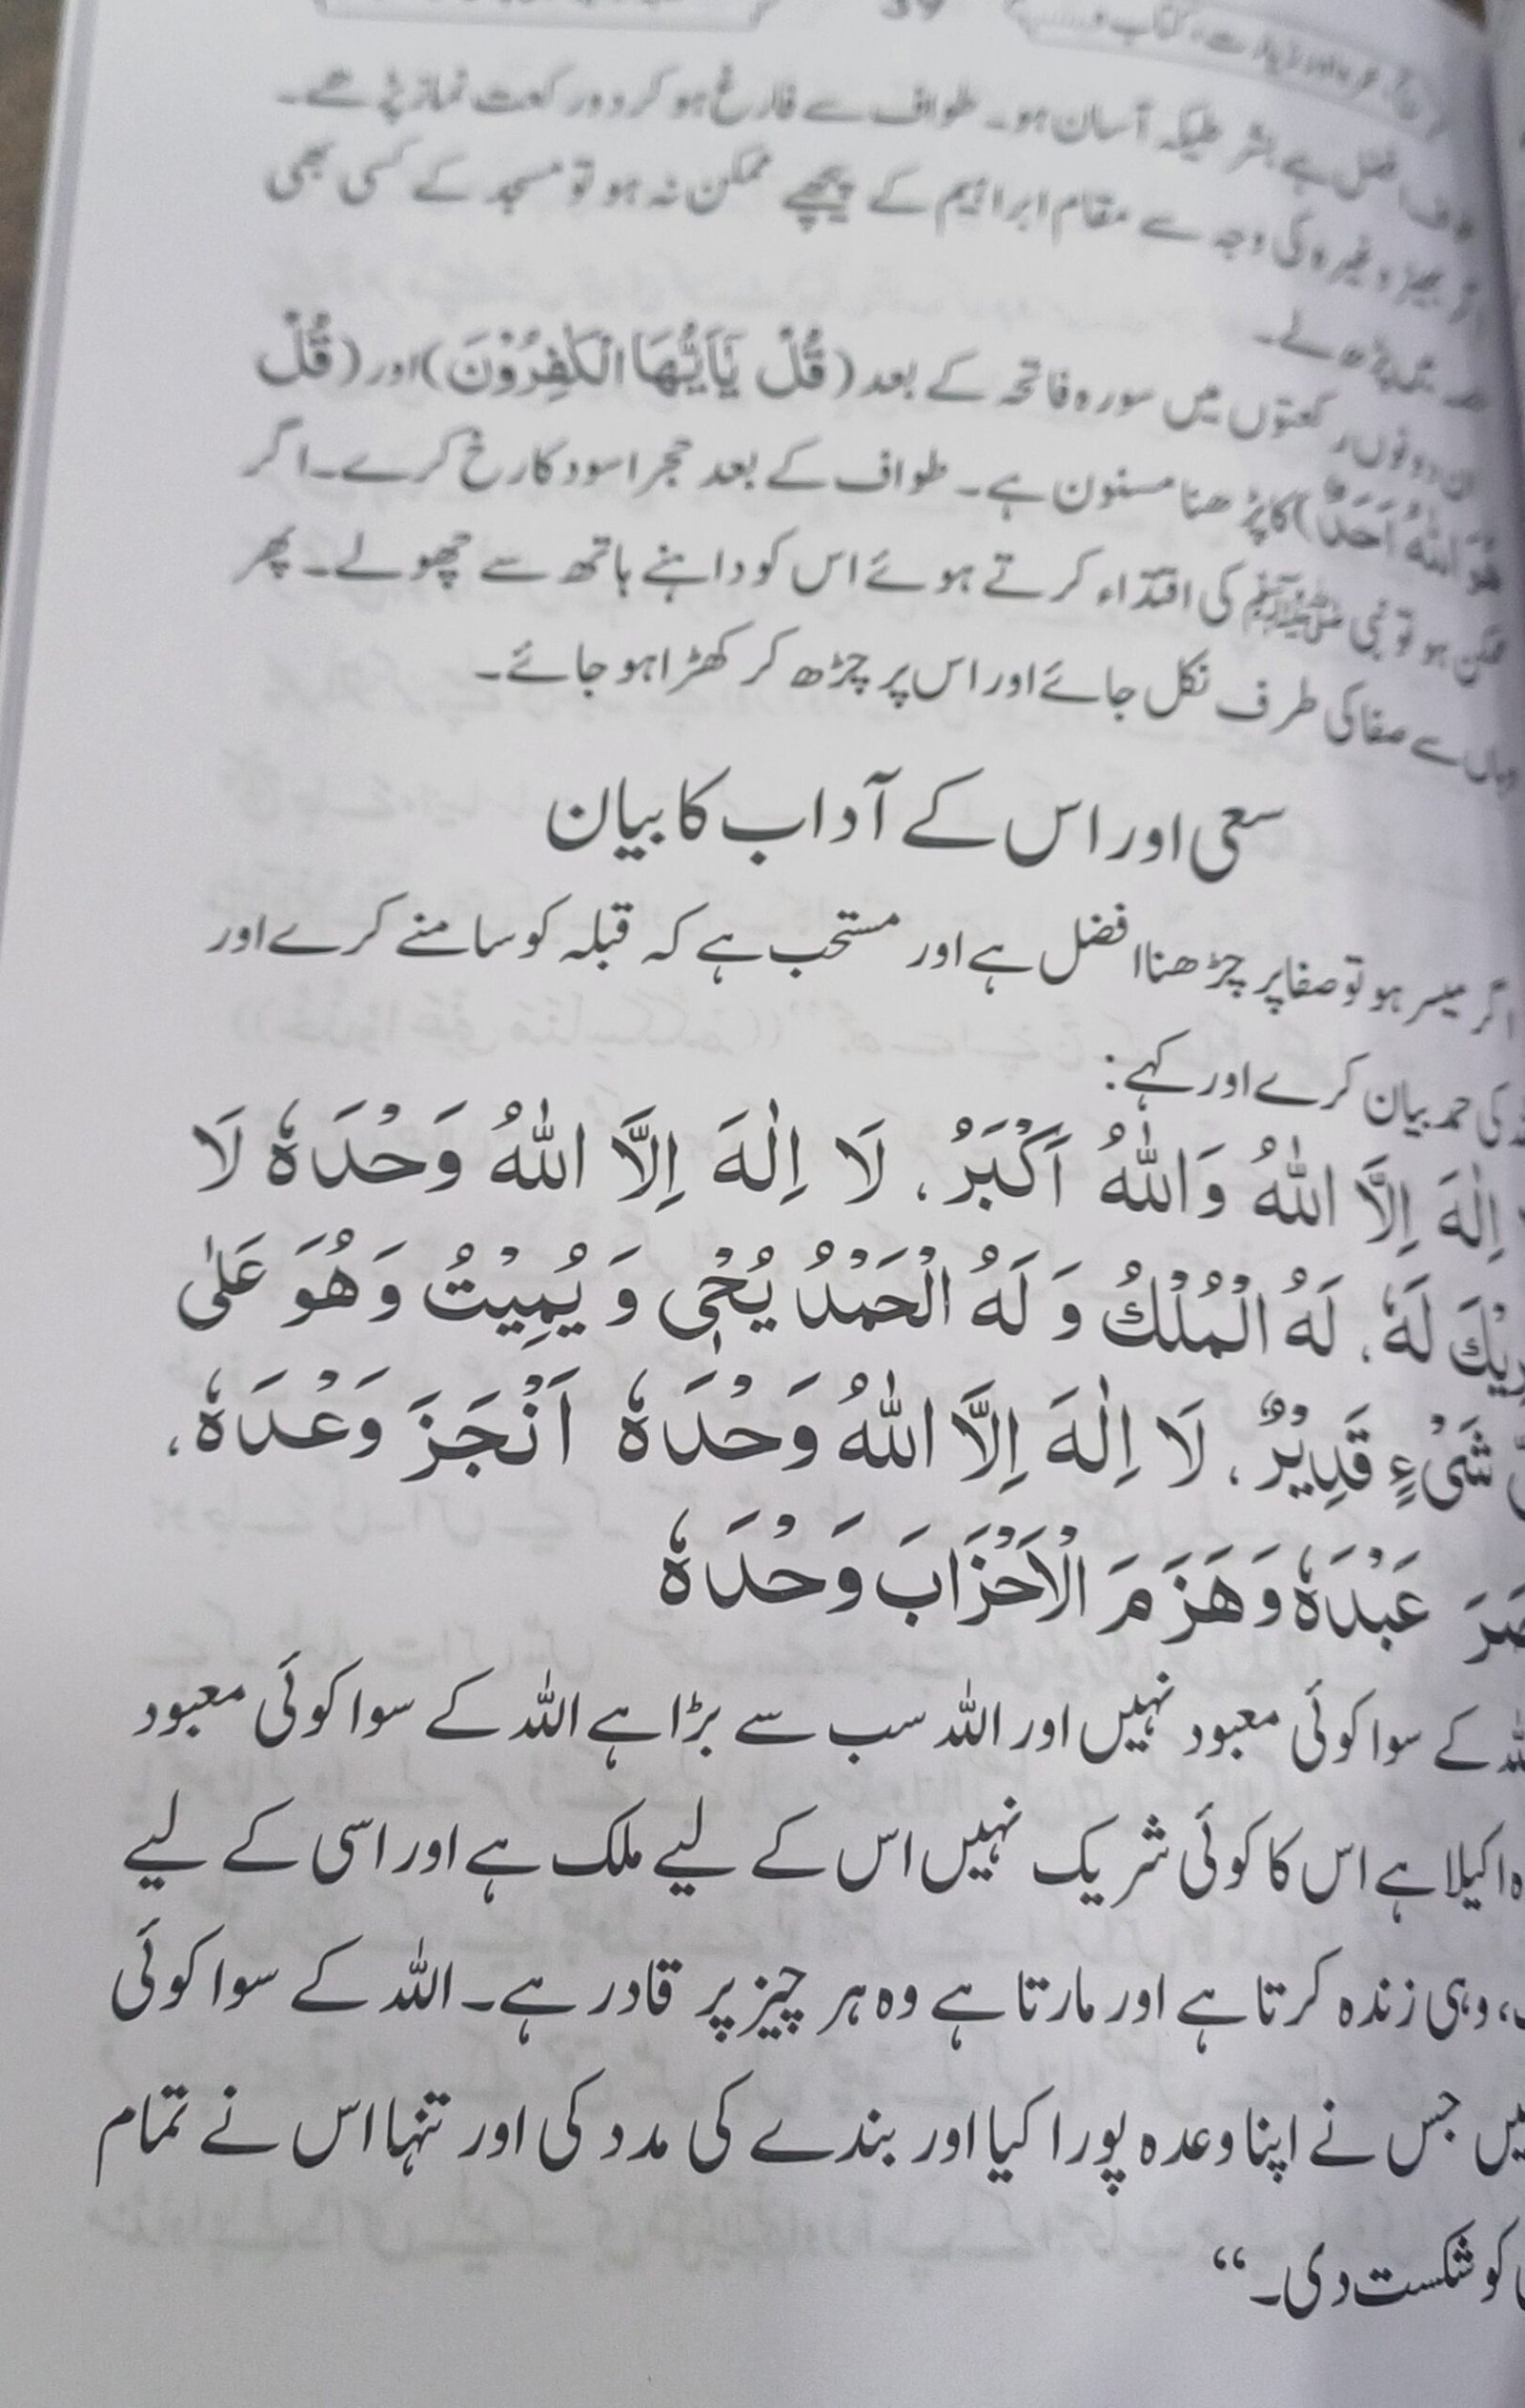 39
عمرہ اور زیارت، کتاب و
افضل ہے بشرطیکہ آسان ہو۔ طواف سے فارغ ہو کر دو رکعت نماز پڑھے۔
اگر بھیڑ وغیرہ کی وجہ سے مقام ابراہیم کے پیچھے ممکن نہ ہو تو مسجد کے کسی بھی
میں پڑھ لے۔
ان دونوں رکعتوں میں سورہ فاتحہ کے بعد (قُلْ يٰۤاَيُّهَا الْكٰفِرُوْنَ) اور (قُلْ
هُوَ اللّٰهُ اَحَدٌ) کا پڑھنا مسنون ہے۔ طواف کے بعد حجر اسود کا رخ کرے۔ اگر
ممکن ہو تو نبی ﷺ کی اقتداء کرتے ہوئے اس کو داہنے ہاتھ سے چھولے۔ پھر
وہاں سے صفا کی طرف نکل جائے اور اس پر چڑھ کر کھڑا ہو جائے۔
سعی اور اس کے آداب کا بیان
اگر میسر ہو تو صفا پر چڑھنا افضل ہے اور مستحب ہے کہ قبلہ کو سامنے کرے اور
کی حمد بیان کرے اور کہے:
اِلٰهَ اِلَّا اللّٰهُ وَاللّٰهُ اَكْبَرُ، لَا اِلٰهَ اِلَّا اللّٰهُ وَحْدَهٗ لَا
رِيْكَ لَهٗ، لَهُ الْمُلْكُ وَ لَهُ الْحَمْدُ يُحْيٖ وَ يُمِيْتُ وَ هُوَ عَلٰى
شَيْءٍ قَدِيْرٌ، لَا اِلٰهَ اِلَّا اللّٰهُ وَحْدَهٗ اَنْجَزَ وَعْدَهٗ،
صَرَ عَبْدَهٗ وَ هَزَمَ الْاَحْزَابَ وَحْدَهٗ
کے سوا کوئی معبود نہیں اور اللہ سب سے بڑا ہے اللہ کے سوا کوئی معبود
اکیلا ہے اس کا کوئی شریک نہیں اس کے لیے ملک ہے اور اسی کے لیے
، وہی زندہ کرتا ہے اور مارتا ہے وہ ہر چیز پر قادر ہے۔ اللہ کے سوا کوئی
جس نے اپنا وعدہ پورا کیا اور بندے کی مدد کی اور تنہا اس نے تمام
کو شکست دی۔“